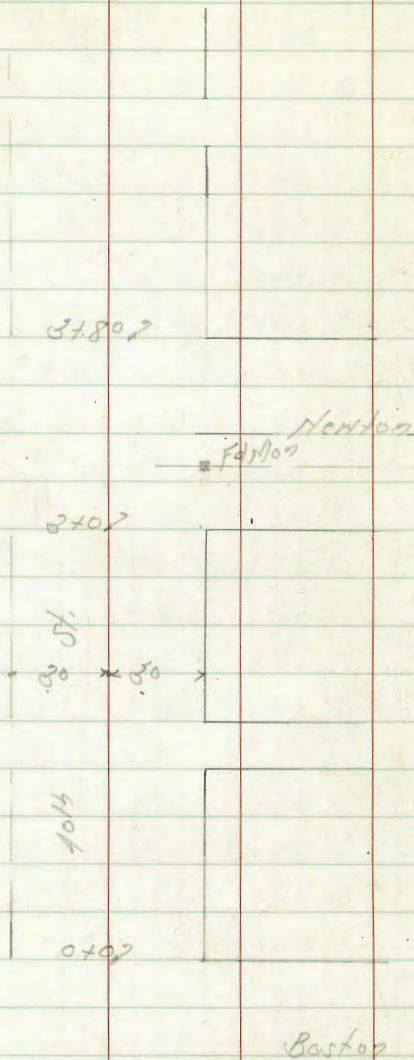 3+80?
Newton
Fd Mon
3+0?
St.
30 30
40th
0+0?
Boston